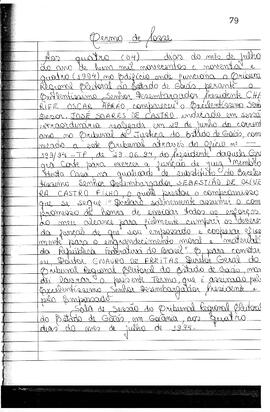 79
Termo de Posse
Aos quatro (04) dias do mês de julho
do ano de hum mil novecentos e noventa e
quatro (1994), no Edifício onde funciona o Tribunal
Regional Eleitoral do Estado de Goiás, perante o
Excelentíssimo Senhor Desembargador Presidente CHA-
RIFE OSCAR ABRÃO compareceu o Excelentíssimo
JOSÉ SOARES DE CASTRO indicado em sessão
extraordinária realizada em 22 de junho do corrente
no Tribunal de Justiça do Estado de Goiás, com
a este Tribunal através do ofício nº
199/94-TP de 23.06.94, do Presidente daquela
Corte para exercer a função de
desta Casa na qualidade de substituto do Excelen-
tíssimo Senhor Desembargador SEBASTIÃO DE OLIVEI-
RA CASTRO FILHO, o qual prestou o compromisso
que se segue "Declaro solenemente assumir o com-
promisso de honra de envidar todos os esforços
ao meu alcance para fielmente cumprir os deveres
da função de que sou empossado e cooperar
mente para o engrandecimento moral e material
da República Federativa do Brasil". E, para constar
eu, Doutor EMAURO DE FREITAS, Diretor Geral do
Tribunal Regional Eleitoral do Estado de Goiás, man-
dei lavrar o presente Termo, que é assinado pelo
Excelentíssimo Senhor Desembargador Presidente e
pelo Empossado.
Sala de Sessão do Tribunal Regional Eleitoral
do Estado de Goiás, em Goiânia, aos quatro
dias do mês de julho de 1994.